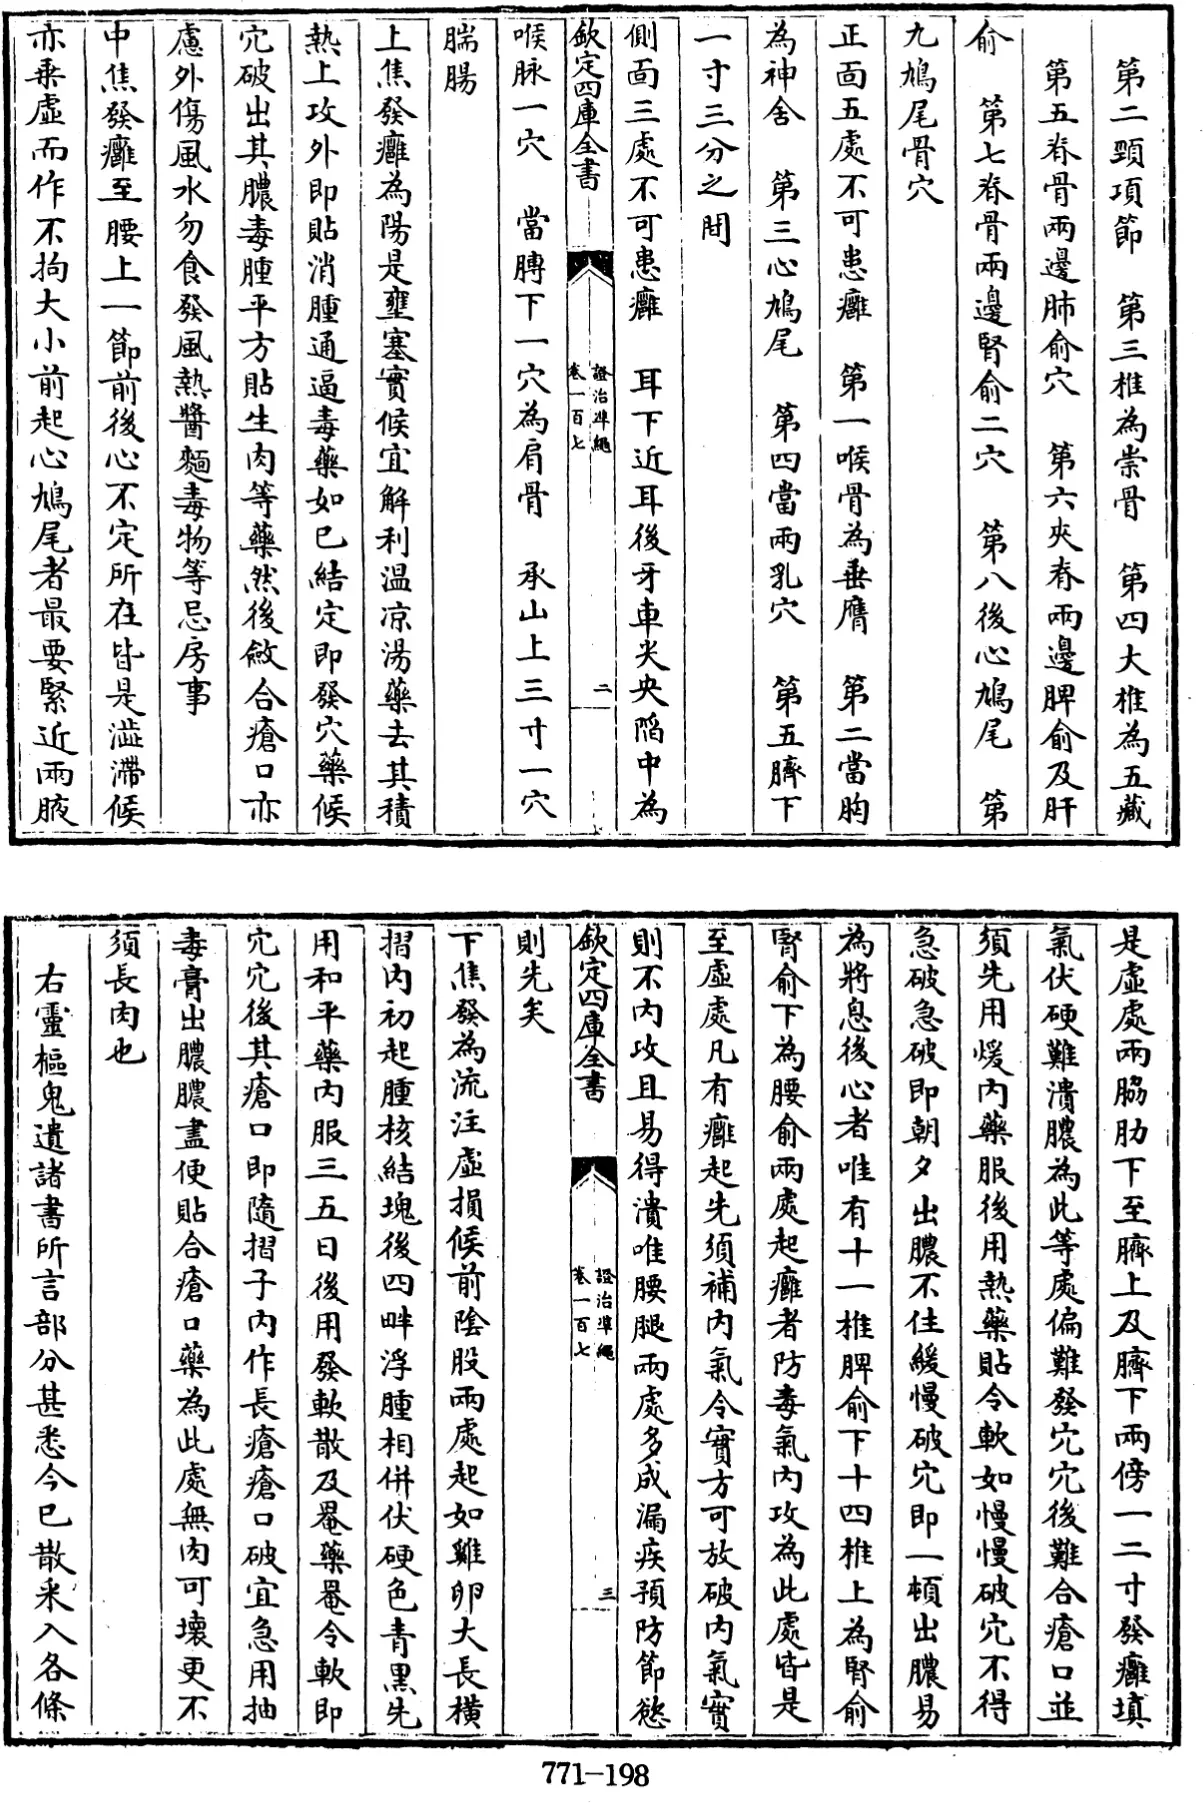 第二頸項節　第三椎為崇骨　第四大椎為五藏
第五脊骨兩邊肺俞穴　第六夾脊兩邊脾俞及肝
俞　第七脊骨兩邊腎俞二穴　第八後心鳩尾　第
九鳩尾骨穴
正面五處不可患癰　第一喉骨為垂膺　第二當胸
為神舍　第三心鳩尾　第四當兩乳穴　第五臍下
一寸三分之間
側面三處不可患癰　耳下近耳後牙車尖央陷中為
欽定四庫全書
證治準繩
卷一百七
二
喉脉一穴　當膊下一穴為肩骨　承山上三寸一穴
腨腸
上焦發癰為陽是壅塞實候宜解利温凉湯藥去其積
熱上攻外即貼消腫通逼毒藥如已結定即發穴藥候
穴破出其膿毒腫平方貼生肉等藥然後斂合瘡口亦
慮外傷風水勿食發風熱醬麵毒物等忌房事
中焦發癰至腰上一節前後心不定所在皆是澁滯候
亦乗虛而作不拘大小前起心鳩尾者最要緊近兩腋
是虛處兩脇肋下至臍上及臍下兩傍一二寸發癰填
氣伏硬難潰膿為此等處偏難發穴穴後難合瘡口並
須先用煖内藥服後用熱藥貼令軟如慢慢破穴不得
急破急破即朝夕出膿不住緩慢破穴即一頓出膿易
為將息後心者唯有十一椎脾俞下十四椎上為腎俞
腎俞下為腰俞兩處起癰者防毒氣内攻為此處皆是
至虛處凡有癰起先須補内氣令實方可放破内氣實
則不内攻且易得潰唯腰腿兩處多成漏疾預防節慾
欽定四庫全書
證治準繩
卷一百七
三
則先矣
下焦發為流注虛損候前陰股兩處起如雞卵大長横
摺内初起腫核結塊後四畔浮腫相併伏硬色青黑先
用和平藥内服三五日後用發軟散及罨藥罨令軟即
穴穴後其瘡口即隨摺子内作長瘡瘡口破宜急用抽
毒膏出膿膿盡便貼合瘡口藥為此處無肉可壞更不
須長肉也
右靈樞鬼遺諸書所言部分甚悉今已散采入各條
771-198